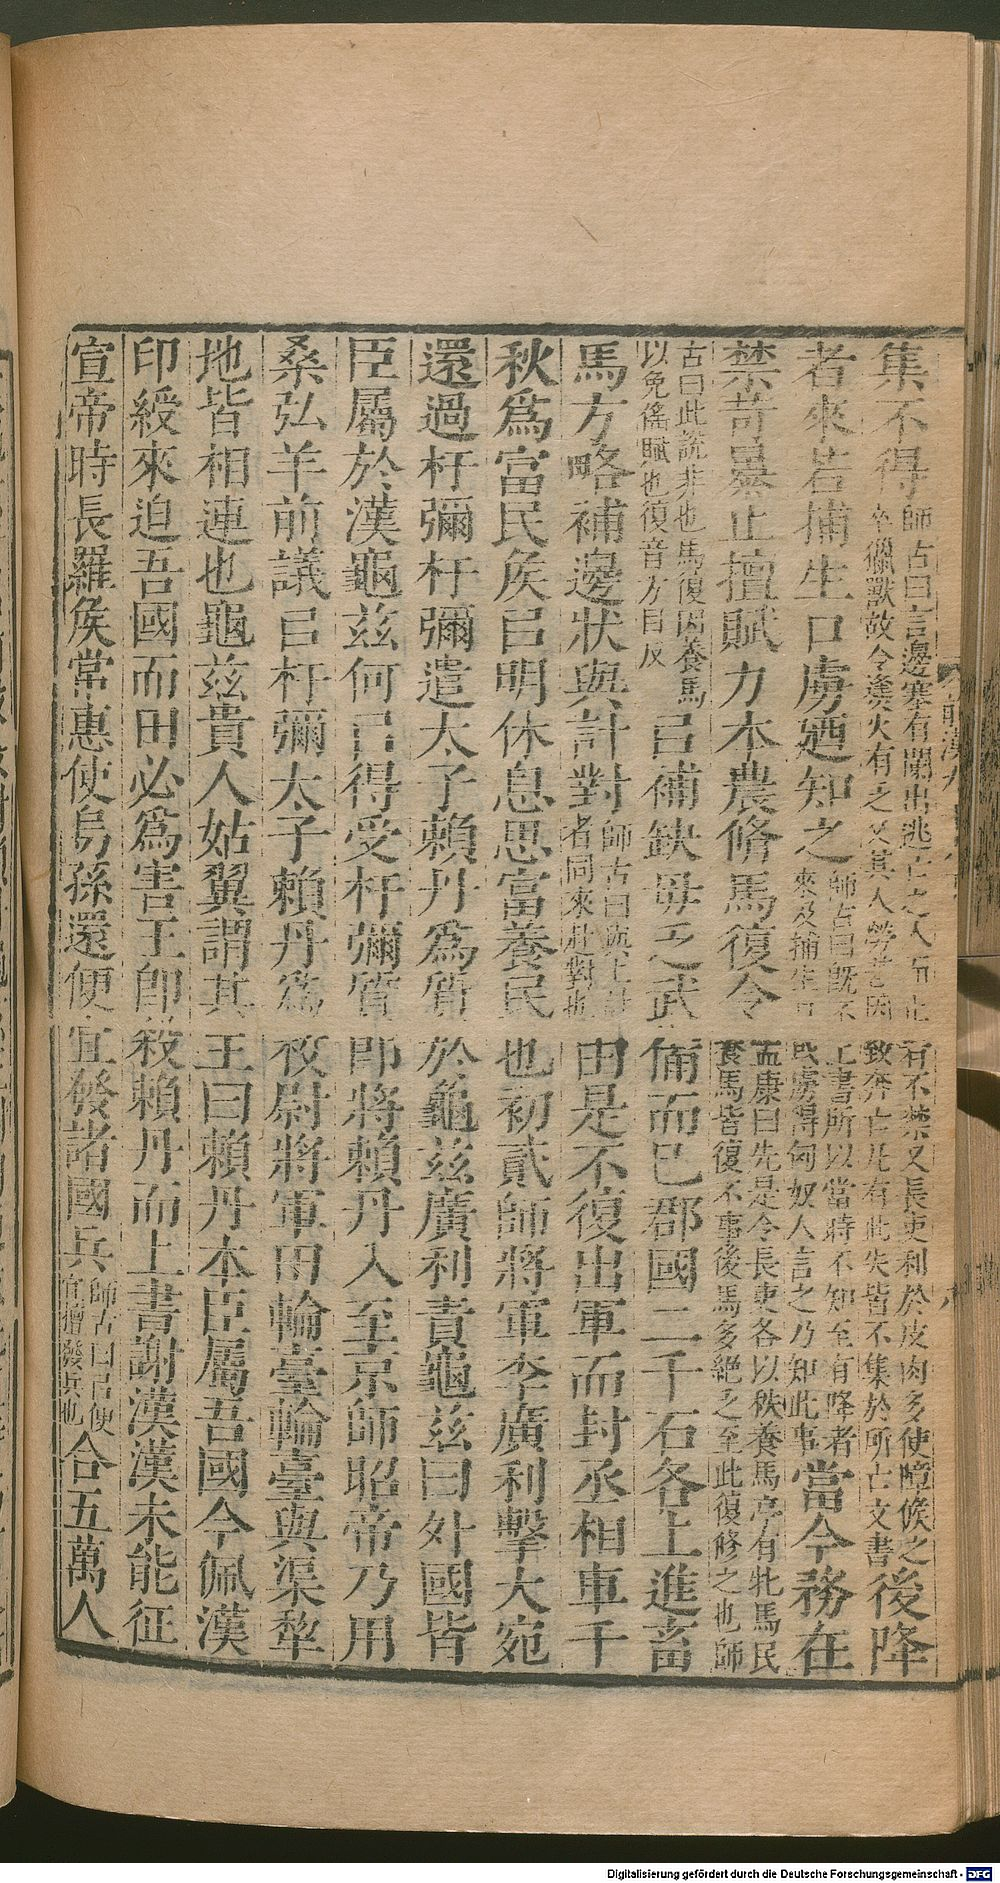 集不得師古曰言邊塞有闌出逃亡之人而止有不禁又長吏利於皮肉多使障候之卒獵獸故令㷭火有乏又其人勞苦因致奔亡凡有此失皆不集於所占文書後降
者來若捕生口虜廼知之師古曰旣不上書所以當時不知至有降者來及捕生口或虜得匈奴人言之乃知此事當今務在
禁苛暴止擅賦力本農脩馬復令孟康曰先是令長吏各以秩養馬亭有牝馬民養馬皆復不事後馬多絕乏至此復修之也師
古曰此說非也馬復因養馬以免傜賦也復音方目反㠯補缺毋乏武備而已郡國二千石各上進畜
馬方略補邊狀與計對師古曰與上計者同來赴對也由是不復出軍而封丞相車千
秋爲富民矦㠯明休息思富養民也初貳師將軍李廣利擊大宛
還過杅彌杅彌遣太子賴丹爲質於龜兹廣利責龜兹曰外國皆
臣屬於漢龜兹何㠯得受杅彌質卽將賴丹入至京師昭帝乃用
桑弘羊前議㠯杅彌太子賴丹爲校尉將軍田輪臺輪臺與渠犂
地皆相連也龜兹貴人姑翼謂其王曰賴丹本臣屬吾國今佩漢
印綬來迫吾國而田必爲害王卽殺賴丹而上書謝漢漢未能征
宣帝時長羅矦常惠使烏孫還便宜發諸國兵師古曰㠯便宜擅發兵也合五萬人
Digitalisierung gefördert durch die Deutsche Forschungsgemeinschaft - DFG